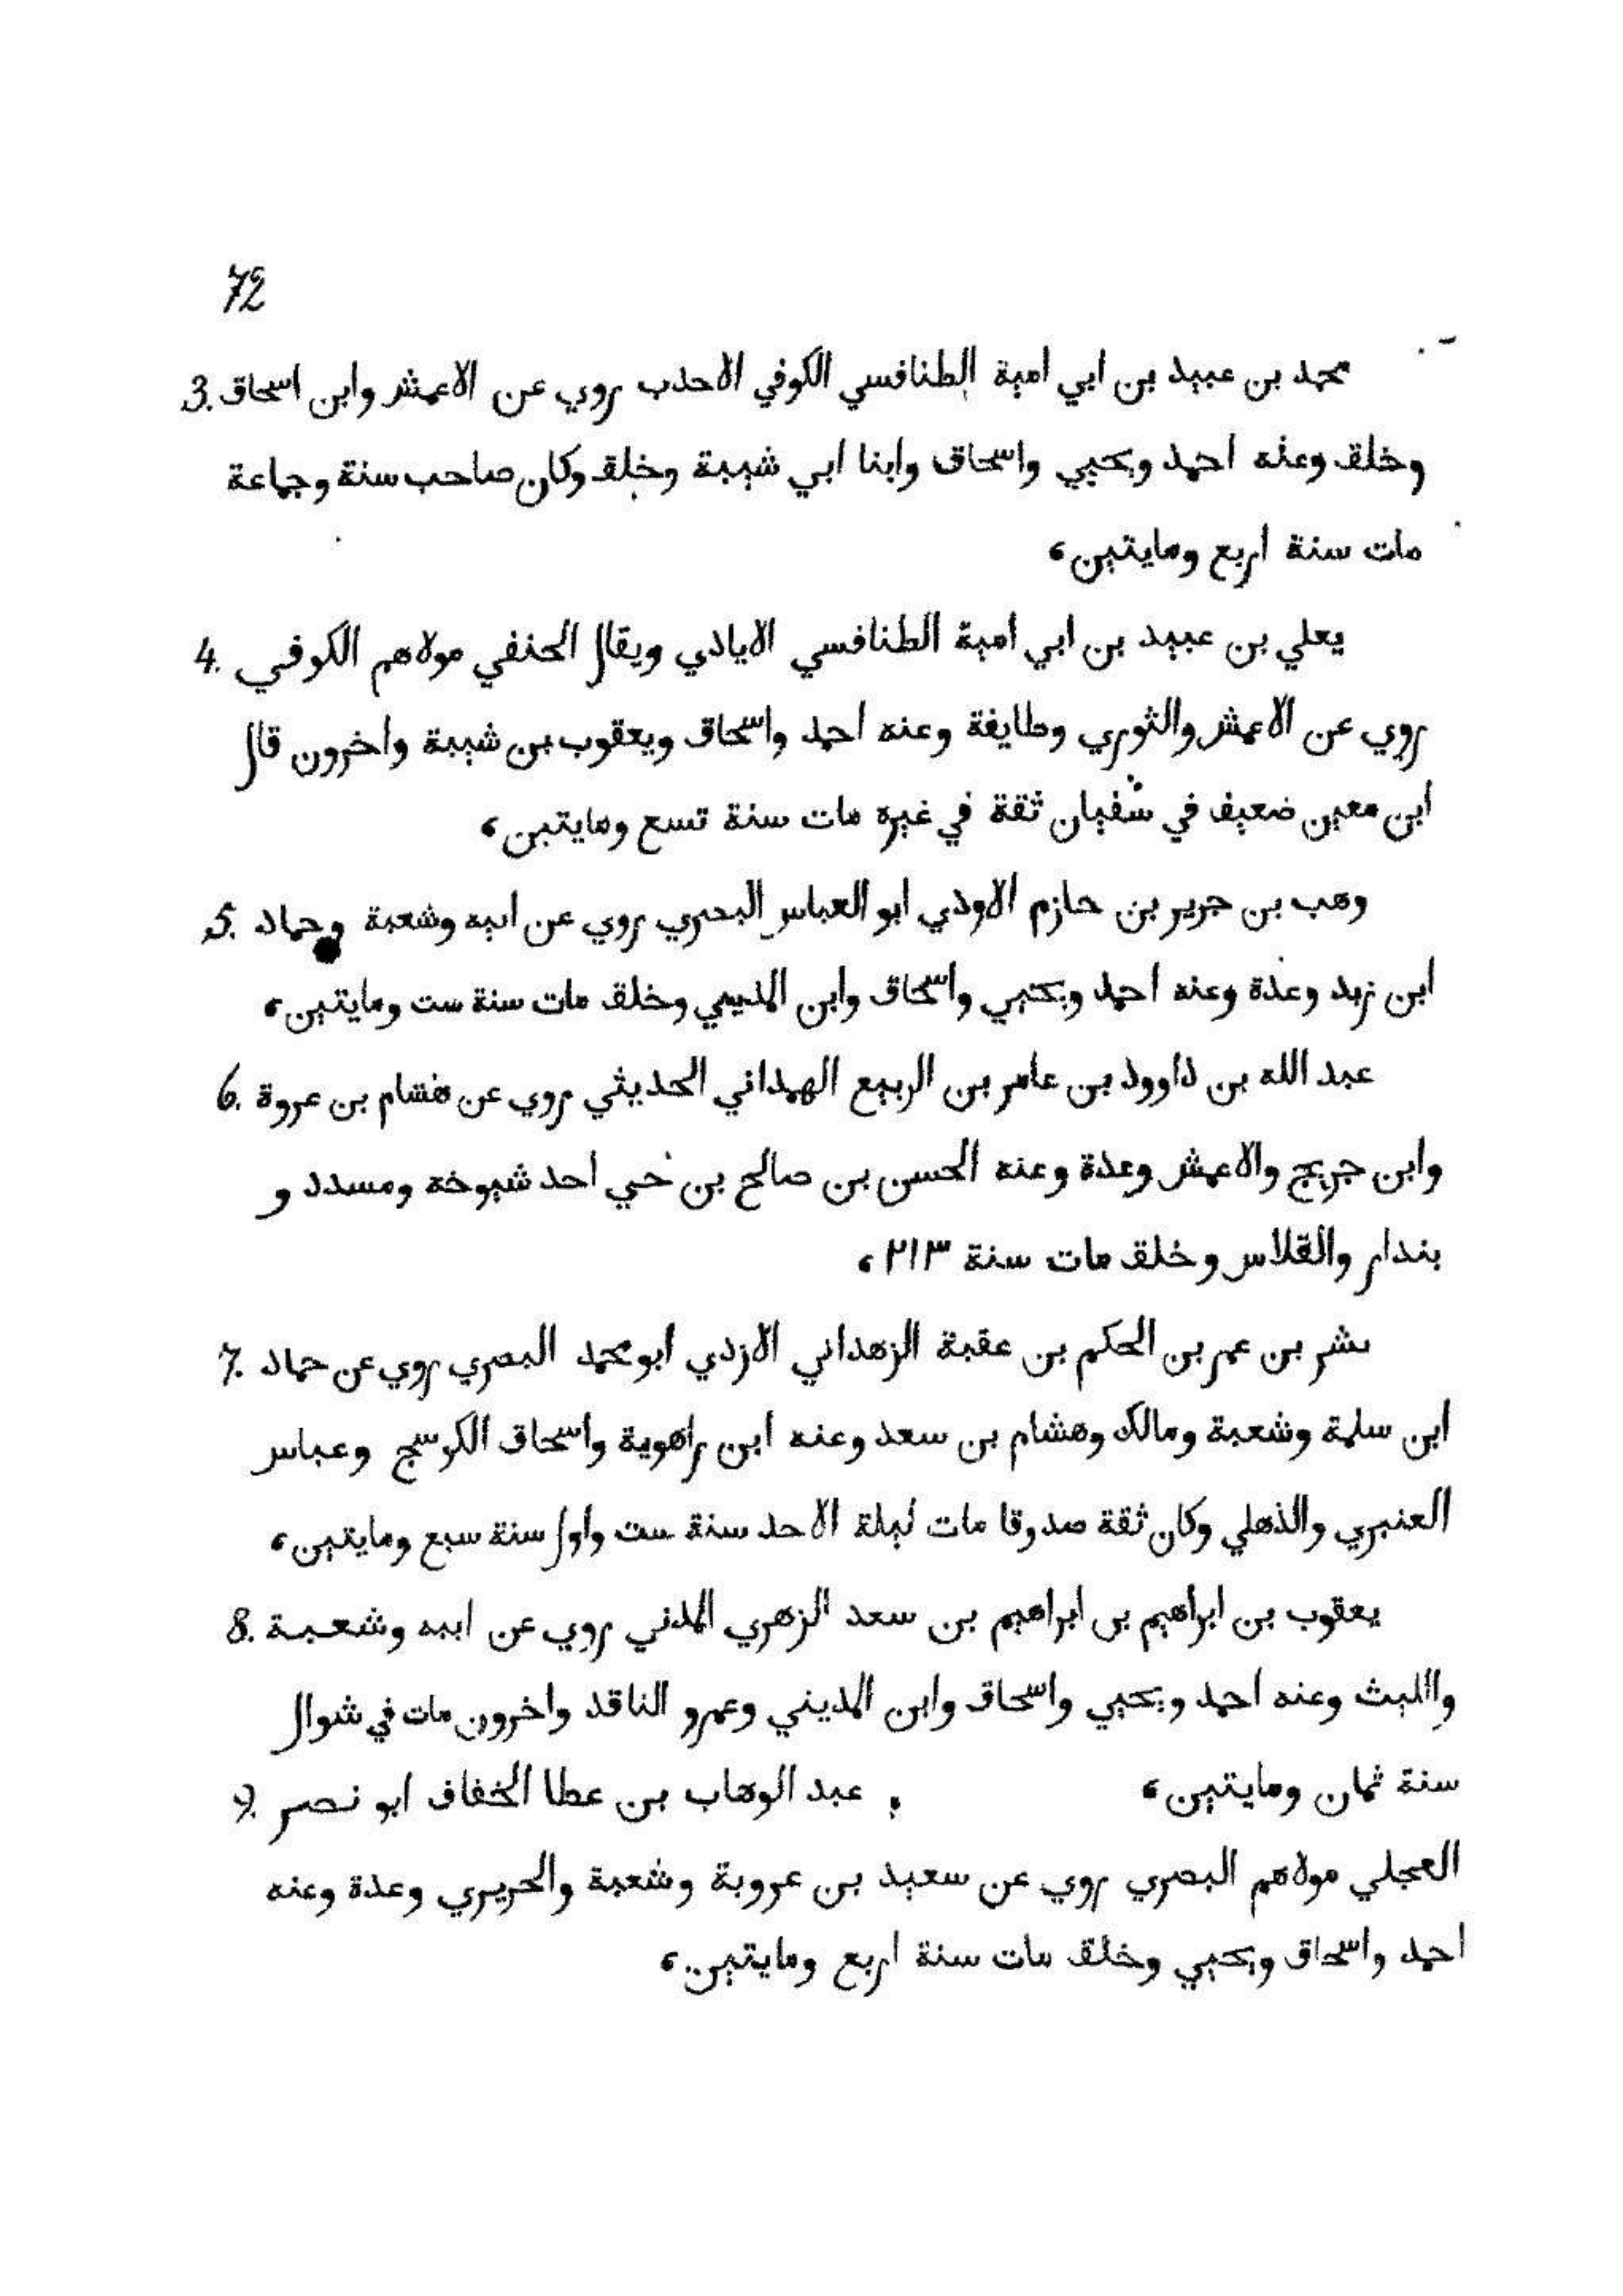 72
محمد بن عبيد بن ابي امية الطنافسي الكوفي الاحدب روي عن الاعمش وابن اسحاق 3.
وخلق وعنه احمد ويحيي واسحاق وابنا ابي شيبة وخلق وكان صاحب سنة وجماعة
مات سنة اربع ومايتين،
يعلي بن عبيد بن ابي امية الطنافسي الايادي ويقال الحنفي مولاهم الكوفي 4.
روي عن الاعمش والثوري وطايفة وعنه احمد واسحاق ويعقوب بن شيبة واخرون قال
ابن معين ضعيف في سفيان ثقة في غيره مات سنة تسع ومايتين،
وهب بن جرير بن حازم الاودي ابو العباس البصري روي عن ابيه وشعبة وحماد 5.
ابن زيد وعدة وعنه احمد ويحيي واسحاق وابن وخلق مات سنة ست ومايتين،
عبد الله بن داوود بن عامر بن الربيع الهمداني الحديثي روي عن هشام بن عروة 6.
وابن جريج والاعمش وعدة وعنه الحسن بن صالح بن حي احد شيوخه ومسدد و
بندار والقلاس وخلق مات سنة ٢١٣،
بشر بن عمر بن الحكم بن عقبة الزهداني الازدي ابو محمد البصري روي عن حماد 7.
ابن سلمة وشعبة ومالك وهشام بن سعد وعنه ابن راهوية واسحاق الكوسج وعباس
العنبري والذهلي وكان ثقة صدوقا مات ليلة الاحد سنة ست واول سنة سبع ومايتين،
يعقوب بن ابراهيم بن ابراهيم بن سعد الزهري المدني روي عن ابيه وشعبة 8.
والليث وعنه احمد ويحيي واسحاق وابن المديني وعمرو الناقد واخرون مات في شوال
سنة ثمان ومايتين، عبد الوهاب بن عطا الخفاف ابو نصر 9.
العجلي مولاهم البصري روي عن سعيد بن عروبة وشعبة والحريري وعدة وعنه
احمد واسحاق ويحيي وخلق مات سنة اربع ومايتين،